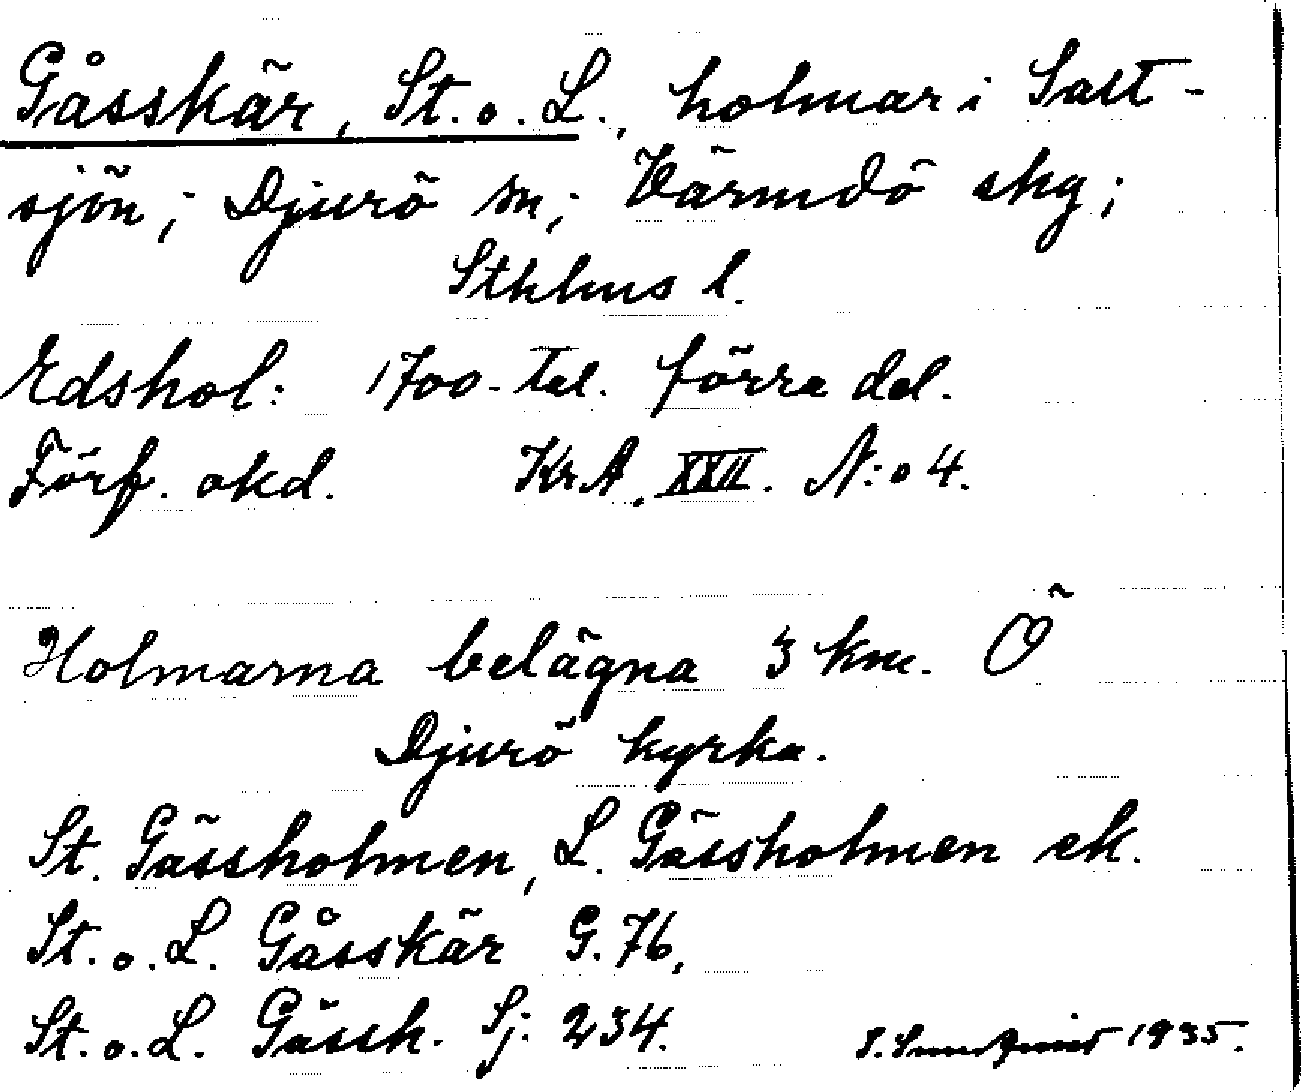 Gåsskär, St. o. L., holmar i Salt-
sjön; Djurö sn; Värmdö skg;
Sthlms l.
Edshol: 1700-tal. förra del.
Förf. okd. Kr.A. XXII. N:o 4.
Holmarna belägna 3 km. Ö
Djurö kyrka.
St. Gässholmen, L. Gässholmen ek.
St. o. L. Gåsskär G. 76,
St. o. L. Gässk. Sj. 234.
1935.